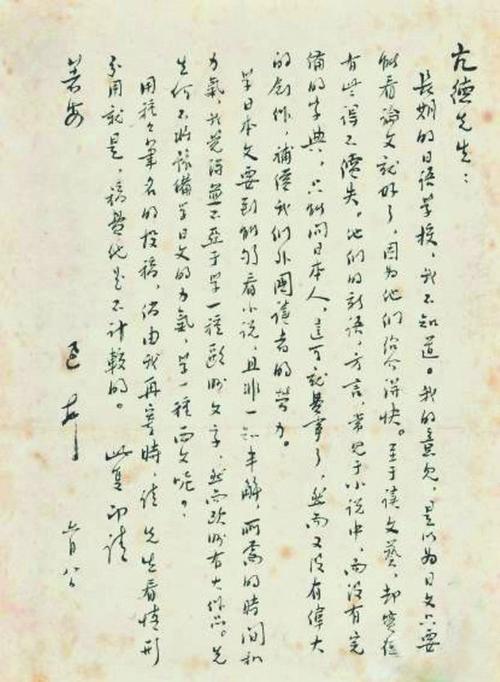 亢德先生：
長期的日語學校，我不知道。我的意見，是以為日文只要
能看論文就好了，因为他們绍介得快。至于讀文藝，却實在
有些得不償失。他們的新語，方言，常見于小說中，而沒有完
備的字典，只能問日本人，這可就費事了，然而又沒有偉大
的創作，補償我們外國讀者的勞力。
學日本文要到能夠看小說，且非一知半解，所需的時間和
力氣，我覺得並不亞于學一種歐洲文字，然而歐洲有大作品。先
生何不將豫備學日文的力氣，學一種西文呢？
用種々筆名的投稿，倘由我再寄時，請 先生看情形
分用就是，稿費他是不計較的。 此复 即請
著安
迅 六月八日